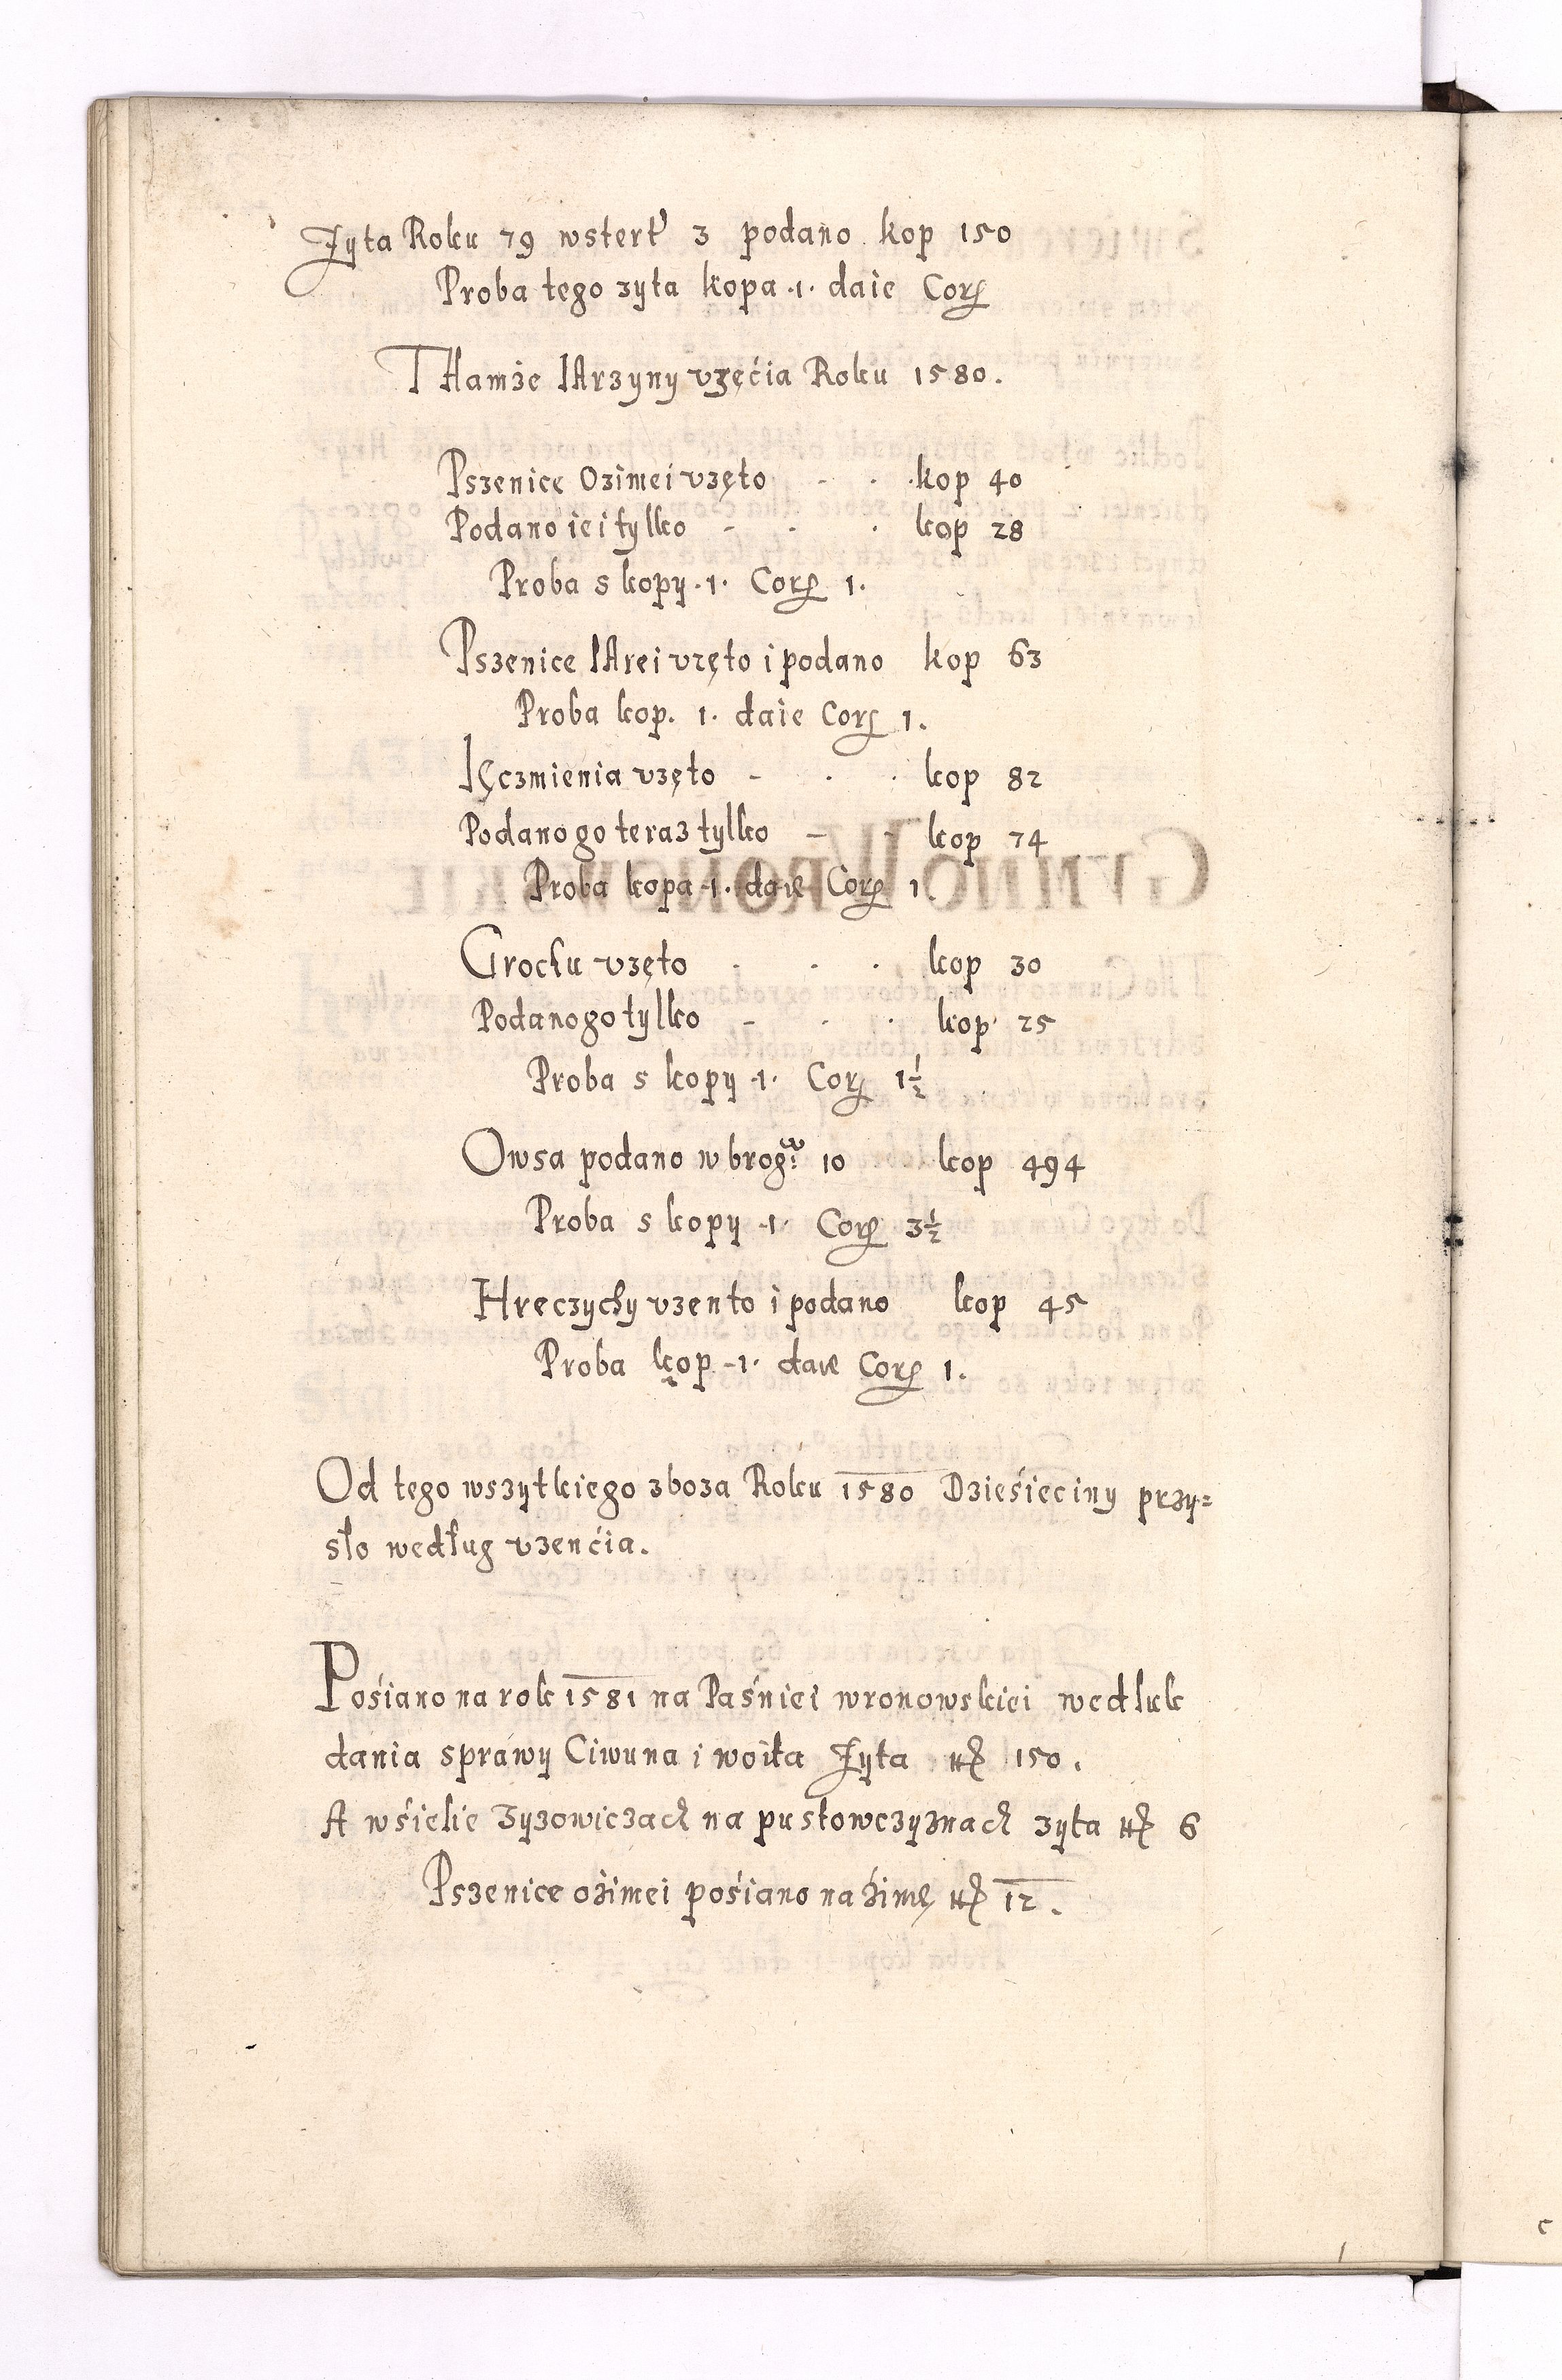 Zyta Roku 79 wstert' 3 podano kop 150
Proba tego zyta kopa .1. daie Corz
TAamże IArzyny vzęćia Roku 1580.
Pszenice Ozimei vzęto - . . kop 40
Podano iei tylko - . . kop 28
Proba s kopy .1. Corz 1.
Pszenice IArei vzęto i podano kop 63
Proba kop. 1. daie Corz 1.
Ięczmienia vzęto - . . kop 82
Podano go teraz tylko - - kop 74
Proba kopa .1. daie Corz 1.
Grochu vzęto . . . kop 30
Podano go tylko - . . kop 25
Proba s kopy .1. Corz 1½
Owsa podano w brog: 10 kop 494
Proba s kopy .1. Corz 3½
Hreczychy vzento i podano kop 45
Proba kop .1. daie Corz 1.
Od tego wszytkiego zboza Roku 1580 Dzieśieciny przy=
sło według vzenćia.
Pośiano na rok 1581 na Paśniei wronowskiei wedluk
dania sprawy Ciwuna i woita Zyta 150.
A wśielie Zyzowiczach na pustowczyznach zyta 6
Pszenice oźimei pośiano na źimę 12.